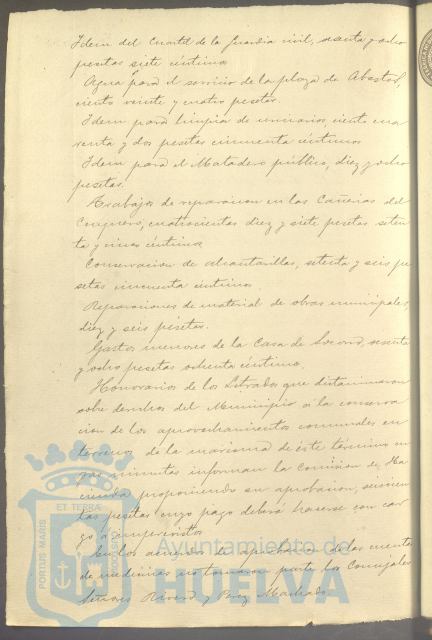 Idem del Cuartel de la Guardia civil, sesenta y ocho
pesetas siete céntimos
Agua para el servicio de la plaza de Abastos,
ciento veinte y cuatro pesetas
Idem para limpia de urinarios, ciento cua
renta y dos pesetas cincuenta céntimos
Idem para el Matadero público, diez y ocho
pesetas.
Trabajos de reparacion en las Cañerias del
Conquero, cuatrocientas diez y siete pesetas seten
ta y cinco céntimos
Conservacion de alcantarillas, setenta y seis pe
setas cincuenta céntimos.
Reparaciones de material de obras municipales,
diez y seis pesetas.
Gastos menores de la Casa de Socorro, sesenta
y ocho pesetas ochenta céntimos.
Honorarios de los Letrados que dictaminaron
sobre derechos del Municipio á la conserva
cion de los aprovechamientos comunales en
terrenos de la marisma de éste término
minutas informan la Comision de Ha
cienda proponiendo su aprobacion,
tas pesetas cuyo pago deberá hacerse con car
go á imprevistos
En los acuerdos de aprobacion de las cuentas
de medicinas no tomaron parte los Concejales
Señores y Machado.
ET TERRÆ
PORTUS MARIS
Ayuntamiento de
HUELVA